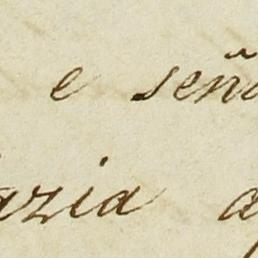 e seño
azia a